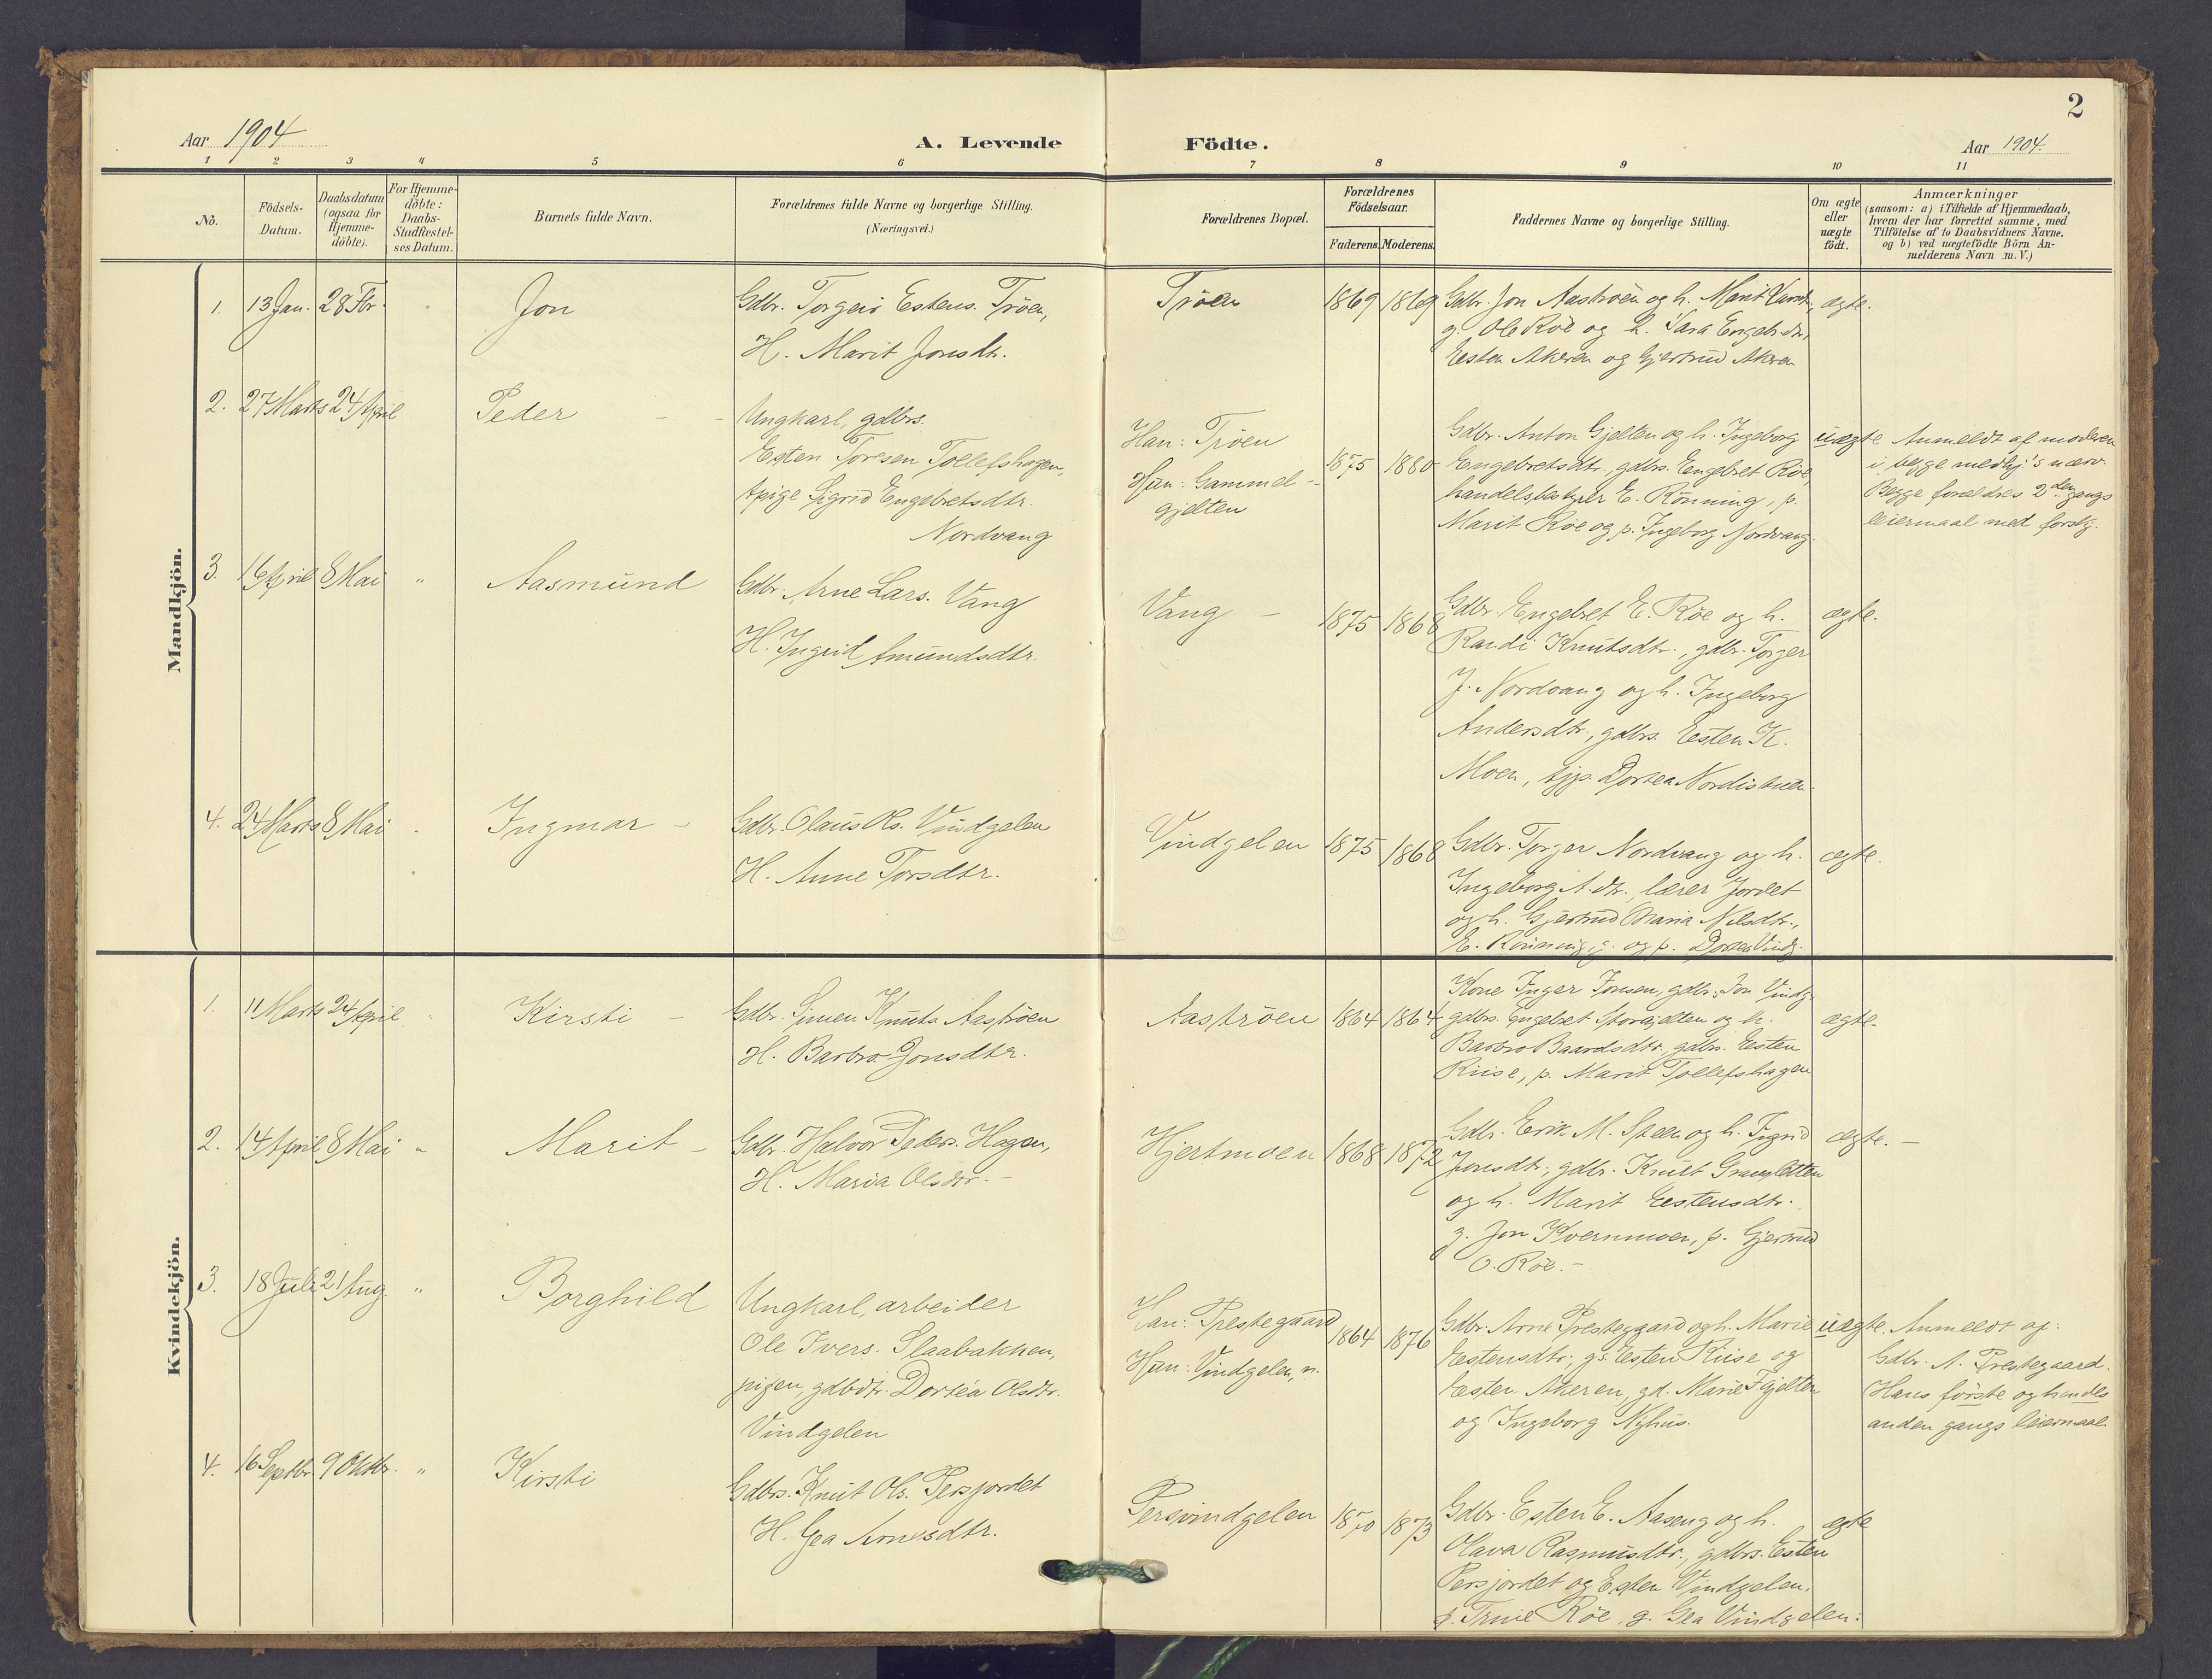 2
Aar 1904
A. Levende Födte.
Aar 1904.
1 2 3 4 5 6 7 8 9 10 11
No.
Födsels-Datum.
Daabsdatum (ogsaa for Hjemme-döbte).
For Hjemme-döbte: Daabs-Stadfæstel-ses Datum.
Barnets fulde Navn.
Forældrenes fulde Navne og borgerlige Stilling.
(Næringsvei.)
Forældrenes Bopæl.
Forældrenes Födselsaar.
Faderens. Moderens.
Faddernes Navne og borgerlige Stilling.
Om ægte eller uægte födt.
Anmærkninger
(saasom: a) i Tilfælde af Hjemmedaab,
hvem der har forrettet samme, med
Tilföielse af to Daabsvidners Navne,
og b) ved uægtefödte Börn An-
melderens Navn m. V.)
Mandkjön.
1. 13 Jan. 28 Fbr. Jon
Gdbr. Torgeir Estens. Tröen,
H. Marit Jonsdtr.
Tröen 1869 1869
Gdbr. Jon Aaströen og h. Marit
g. Ole Röe og Sara Engeb.dtr,
Esten Akeren og Gjertrud Akren
ægte.
2. 27 Marts 24 April Peder
Ungkarl, gdbrs.
Esten Torsen Tollefshagen,
pige Sigrid Engebretsdtr.
Nordvang
Han: Tröen
Hun: Gammel-
gjelten
1875 1880
Gdbr. Anton Gjelten og h. Ingeborg
Engebretsdtr., gdbrs. Engebret Röe,
handelsbestyrer E. Rönning, p.
Marit Röe og p. Ingeborg Nordvang.
uægte
Anmeldt af moderen
i begge medhj.'s nærv.
Begge forældres 2den gangs
leiermaal med forskj.
3. 16 April 8 Mai " Aasmund
Gdbr. Arne Lars. Vang
H. Ingrid Amundsdtr.
Vang 1875 1868
Gdbr. Engebret E. Röe og h.
Randi Knutsdtr., gdbr. Torger
J. Nordvang og h. Ingeborg
Andersdtr., gdbrs. Esten K.
Moen, Dortea
ægte.
4. 24 Marts 8 Mai Ingmar
Gdbr. Olaus Ols. Vindgelen
H. Anne Torsdtr.
Vindgelen 1875 1868
Gdbr. Torger Nordvang og h.
Ingeborg A.dtr., lærer Jordet
og h. Gjertrud Maria Nilsdtr.,
E. Rönning, g. og p. Dortea Vindg.
ægte.
Kvindekjön.
1. 11 Marts 24 April Kirsti
Gdbr. Simen Knuts. Aaströen
H. Barbro Jonsdtr.
Aaströen 1864 1864
Kone Inger Jonsen, gdbr. Jon Vindg.
gdbrs. Engebret Storgjelten og h.
Barbro Baardsdtr., gdbrs. Esten
Riise, p. Marit Tollefshagen
ægte.
2. 14 April 8 Mai " Marit
Gdbr. Halvor Peders. Hagen,
H. Maria Olsdtr.
Hjertmoen 1868 1872
Gdbr. Erik M. Steen og h. Ingrid
Jonsdtr., gdbr. Knut
og h. Marit Estensdtr.
g. Jon Kvernmoen, p. Gjertrud
O. Röe.
ægte.
3. 18 Juli 21 Aug. " Borghild
Ungkarl, arbeider
Ole Ivers. Slaabakken,
pigen, gdbdtr. Dortea Olsdtr.
Vindgelen
Han: Prestegaard
Hun: Vindgelen, n.
1864 1876
Gdbr. Arne Prestegaard og h. Marie
Estensdtr., gs. Esten Riise og
Esten Akeren, gd. Marie
og Ingeborg Nyhus.
uægte.
Anmeldt af:
Gdbr. A. Prestegaard.
Hans förste og hendes
anden gangs leiermaal.
4. 16 Septbr. 9 Oktbr. " Kirsti
Gdbrs. Knut Ols. Persjordet
H. Gea Arnesdtr.
Persvindgelen 1870 1873
Gdbr. Esten E. Aaseng og h.
Olava Rasmusdtr., gdbrs. Esten
Persjordet og Esten Vindgelen.
p. Trine Röe, g. Gea Vindgelen.
ægte